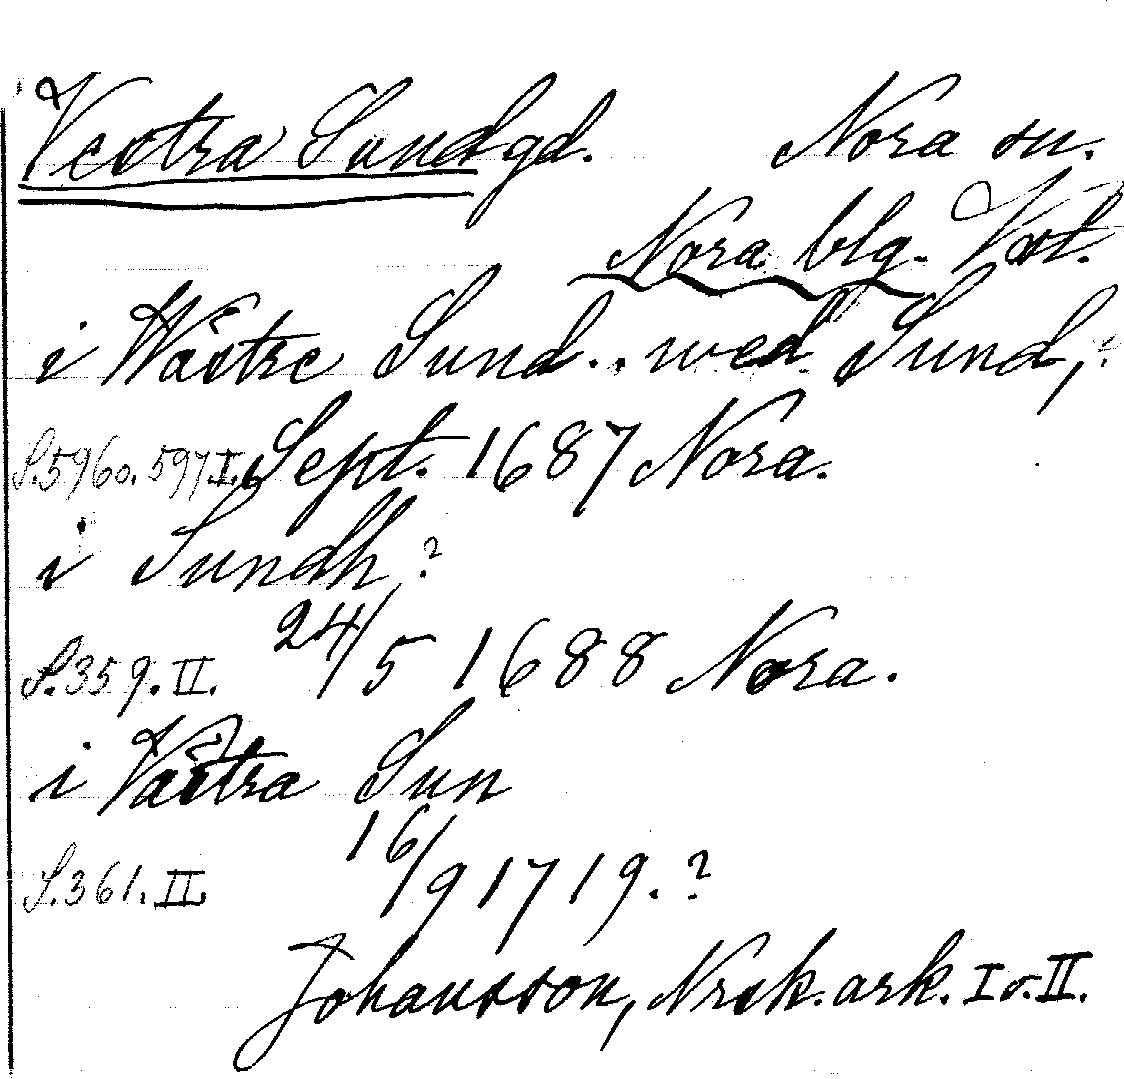 Vestra Sund gd. Nora sn.
Nora blg. Vstl.
i Wästre Sund .. wed Sund, ?
S. 596 o. 597 I. Sept. 1687 Nora.
i Sundh ?
S. 359. II. 24/5 1688 Nora.
i Västra Sun
S. 361. II. 16/9 1719. ?
Johansson, Nrsk. ark. I o. II.